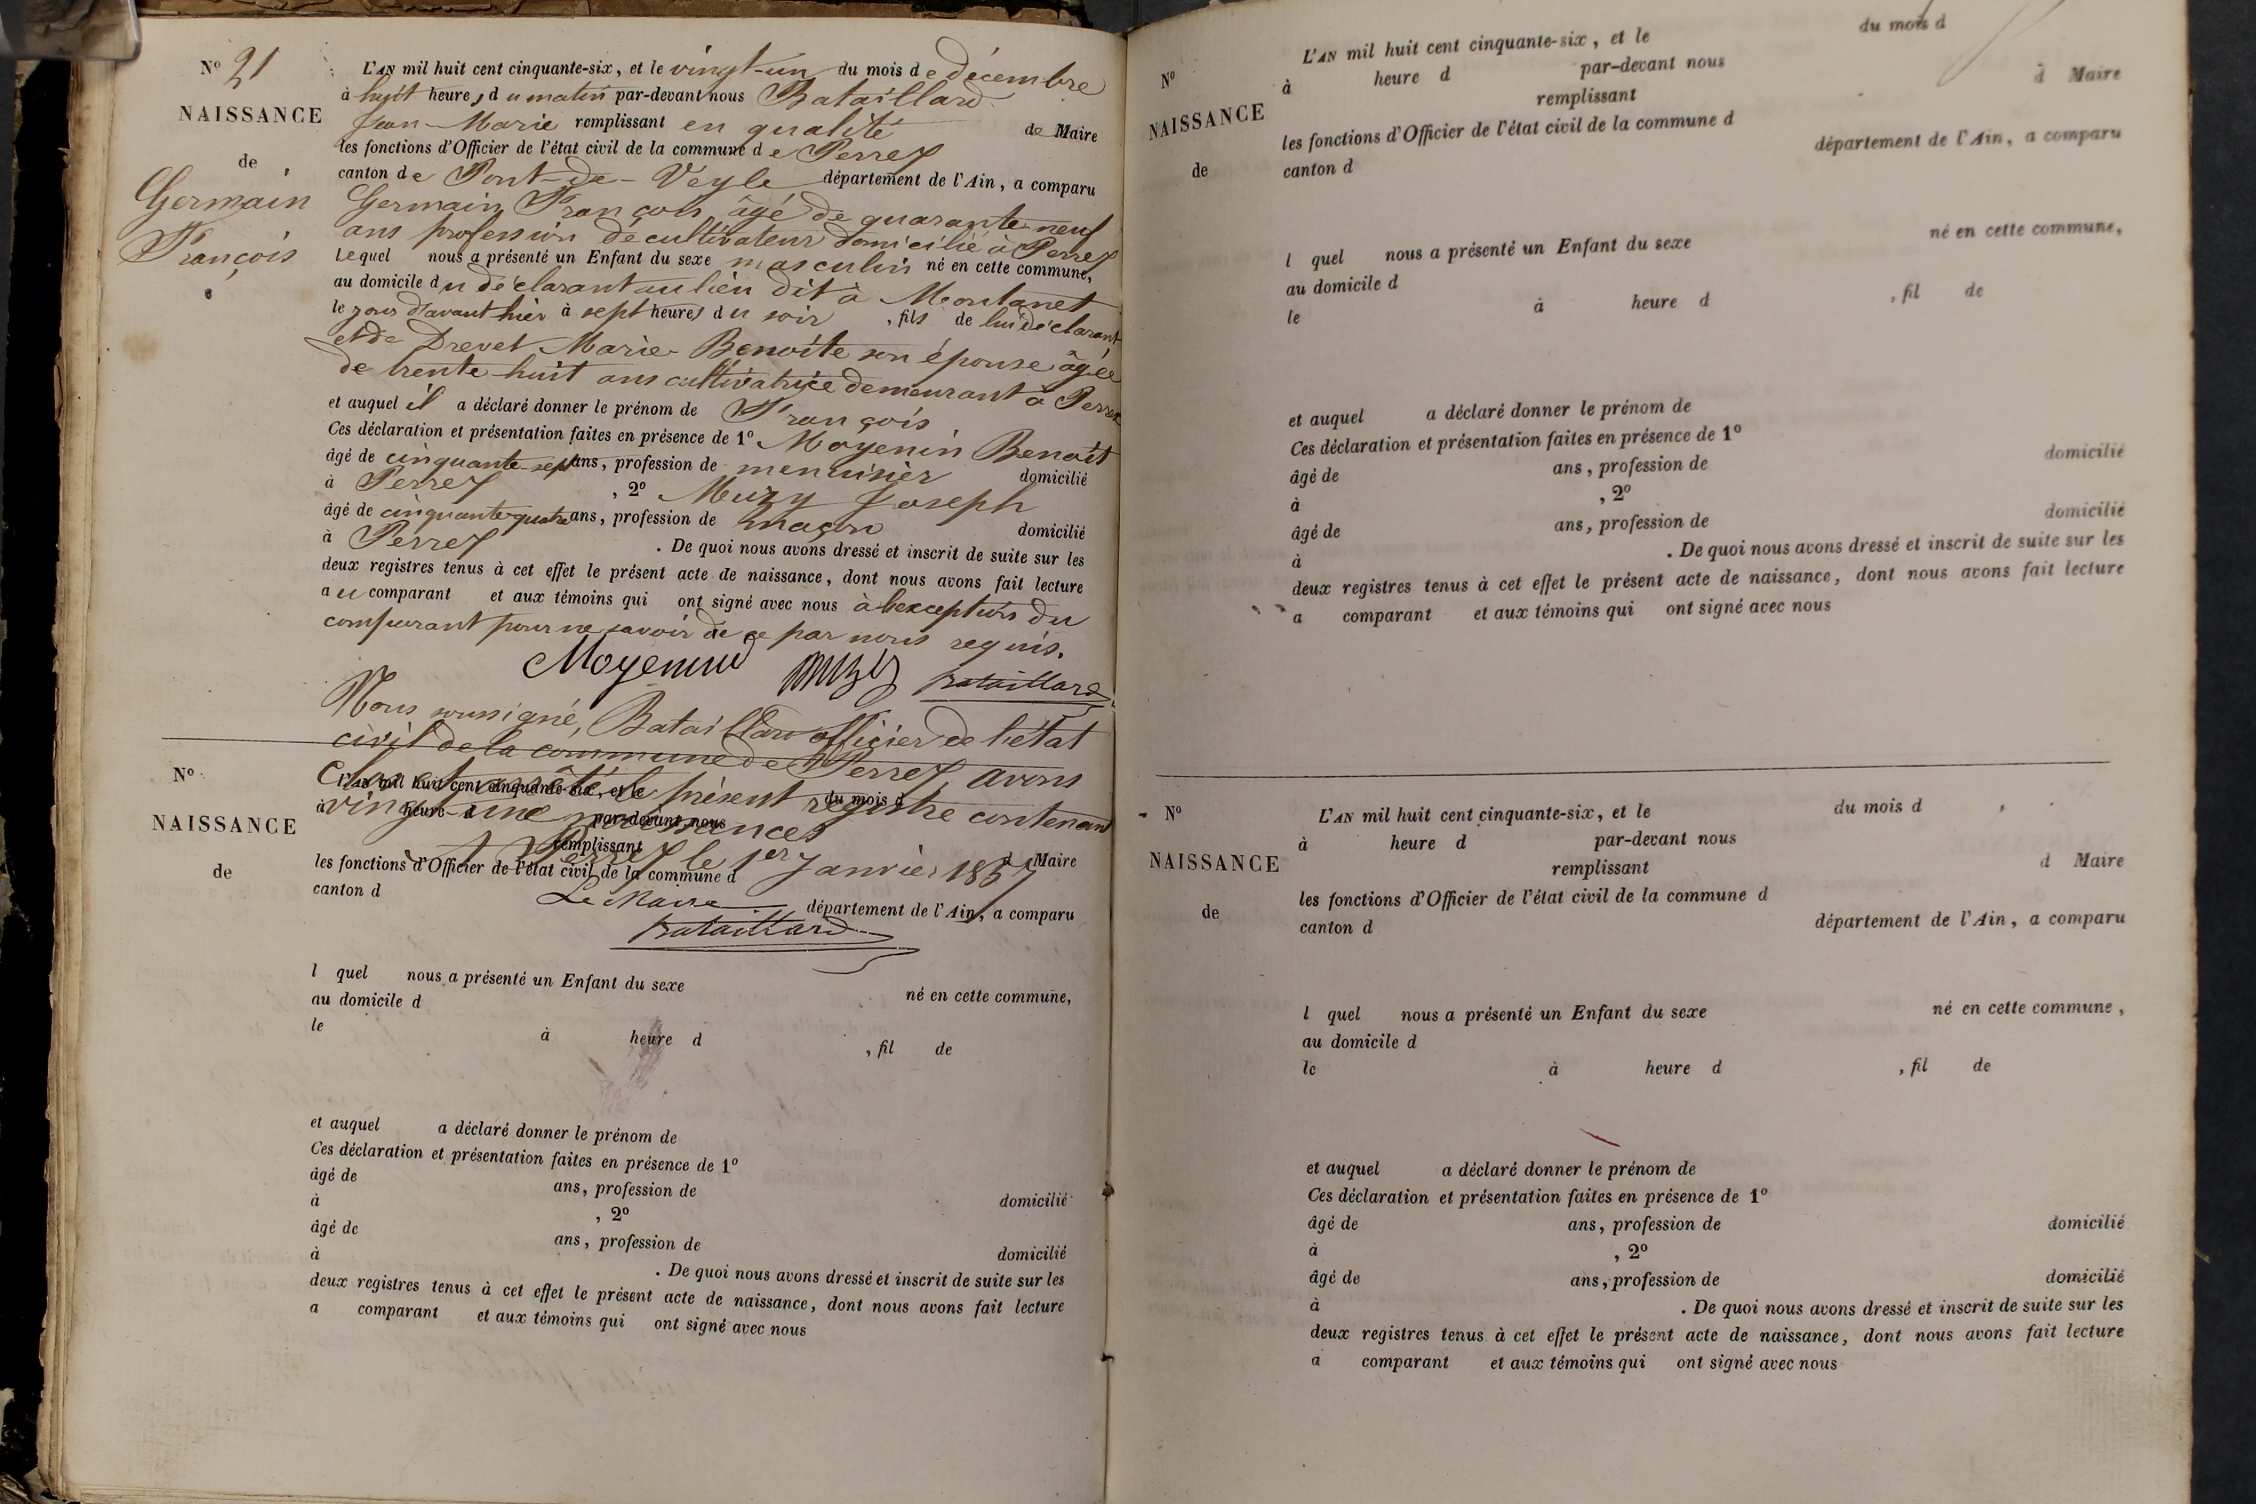 N° 21
NAISSANCE
de
Germain
François
L'AN mil huit cent cinquante-six, et le vingt-un du mois de décembre
à huit heures du matin par-devant nous Bataillard
Jean-Marie remplissant en qualité de Maire
les fonctions d'Officier de l'état civil de la commune de Perrex
canton de Pont-de-Veyle département de l'Ain, a comparu
Germain François âgé de quarante-neuf
ans profession de cultivateur domicilié à Perrex
Lequel nous a présenté un Enfant du sexe masculin né en cette commune,
au domicile du déclarant au lieu dit à Montanet
le jour d'avant hier à sept heures du soir, fils de lui déclarant
et de Drevet Marie Benoite son épouse âgée
de trente huit ans cultivatrice demeurant à Perrex
et auquel il a déclaré donner le prénom de François
Ces déclaration et présentation faites en présence de 1° Moyenin Benoît
âgé de cinquante-sept ans, profession de menuisier domicilié
à Perrex, 2° Muzy Joseph
âgé de cinquante-quatre ans, profession de maçon domicilié
à Perrex. De quoi nous avons dressé et inscrit de suite sur les
deux registres tenus à cet effet le présent acte de naissance, dont nous avons fait lecture
au comparant et aux témoins qui ont signé avec nous à l'exception du
comparant pour ne savoir de ce par nous requis.
Moyenin Muzy Bataillard
Nous soussigné, Bataillard officier de l'état
civil de la commune de Perrex, avons
clos et arrêté le présent registre contenant
vingt-une naissances
A Perrex le 1er Janvier 1857
Le Maire
Bataillard
N°
NAISSANCE
de
L'AN mil huit cent cinquante-six, et le du mois d
à heure d par-devant nous
remplissant d Maire
les fonctions d'Officier de l'état civil de la commune d
canton d département de l'Ain, a comparu
l quel nous a présenté un Enfant du sexe né en cette commune,
au domicile d
le à heure d , fil de
et auquel a déclaré donner le prénom de
Ces déclaration et présentation faites en présence de 1°
âgé de ans, profession de domicilié
à , 2°
âgé de ans, profession de domicilié
à . De quoi nous avons dressé et inscrit de suite sur les
deux registres tenus à cet effet le présent acte de naissance, dont nous avons fait lecture
a comparant et aux témoins qui ont signé avec nous
N°
NAISSANCE
de
L'AN mil huit cent cinquante-six, et le du mois d
à heure d par-devant nous
remplissant d Maire
les fonctions d'Officier de l'état civil de la commune d
canton d département de l'Ain, a comparu
l quel nous a présenté un Enfant du sexe né en cette commune,
au domicile d
le à heure d , fil de
et auquel a déclaré donner le prénom de
Ces déclaration et présentation faites en présence de 1°
âgé de ans, profession de domicilié
à , 2°
âgé de ans, profession de domicilié
à . De quoi nous avons dressé et inscrit de suite sur les
deux registres tenus à cet effet le présent acte de naissance, dont nous avons fait lecture
a comparant et aux témoins qui ont signé avec nous
N°
NAISSANCE
de
L'AN mil huit cent cinquante-six, et le du mois d
à heure d par-devant nous
remplissant d Maire
les fonctions d'Officier de l'état civil de la commune d
canton d département de l'Ain, a comparu
l quel nous a présenté un Enfant du sexe né en cette commune,
au domicile d
le à heure d , fil de
et auquel a déclaré donner le prénom de
Ces déclaration et présentation faites en présence de 1°
âgé de ans, profession de domicilié
à , 2°
âgé de ans, profession de domicilié
à . De quoi nous avons dressé et inscrit de suite sur les
deux registres tenus à cet effet le présent acte de naissance, dont nous avons fait lecture
a comparant et aux témoins qui ont signé avec nous